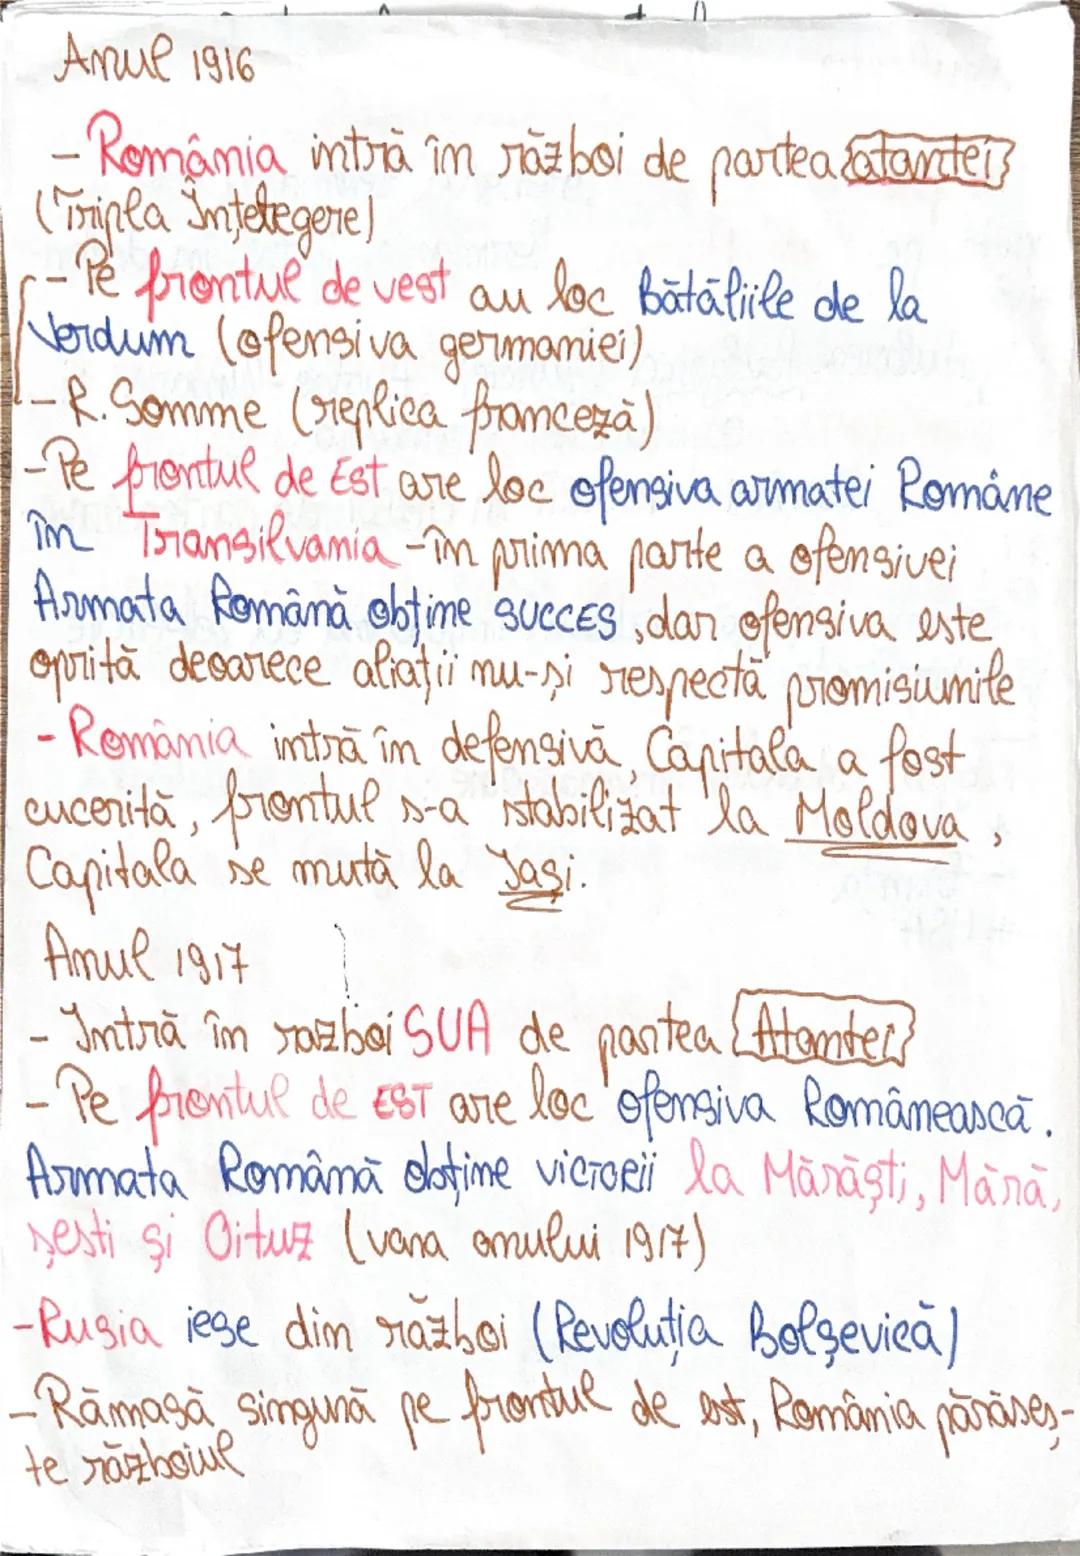 Anul 1916
- România intră în război de partea atantei
(Tripla Înțelegere)
- Pe frontul de vest au loc Bătăliile de la
Verdum (ofensiva germaniei)
- R. Somme (replica franceză)
- Pe frontul de Est are loc ofensiva armatei Române
în Transilvania - în prima parte a ofensivei
Armata Română obține SUCCES, dar ofensiva este
oprită deoarece aliații nu-și respectă promisiunile
- România intră în defensivă, Capitala a fost
cucerită, frontul s-a stabilizat la Moldova,
Capitala se mută la Iași.
Anul 1917
- Intră în razboi SUA de partea Atantei
- Pe frontul de EST are loc ofensiva Românească.
Armata Română obține victorii la Mărăști, Mără,
șesti și Oituz (vara anului 1917)
- Rusia iese din război (Revoluția Bolșevică)
- Rămasă singură pe frontul de est, România părăseș-
te războiul